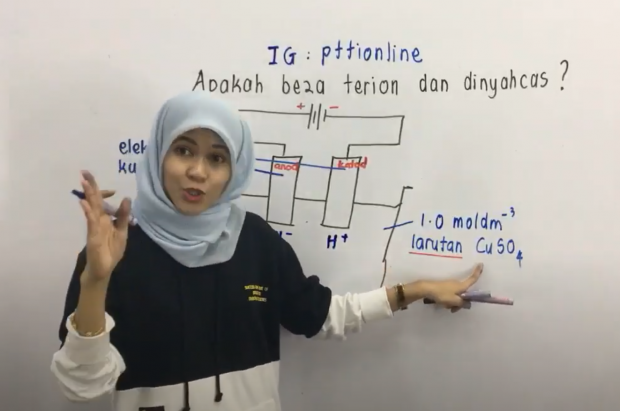 IG : pttionline
Apakah beza terion dan dinyahcas ?
+ -
anod
katod
H+
1.0 moldm-3
larutan CuSO4